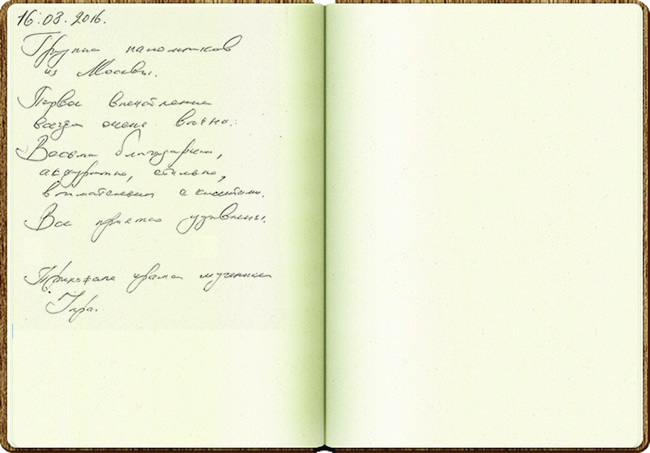 16.08.2016.
Группа паломников
из Москвы.
Первое впечатление
всегда очень важно.
Весьма благодарны,
аккуратно, стильно,
внимательны с клиентами.
Все приятно удивлены.
Прихожане храма мученика
Уара.